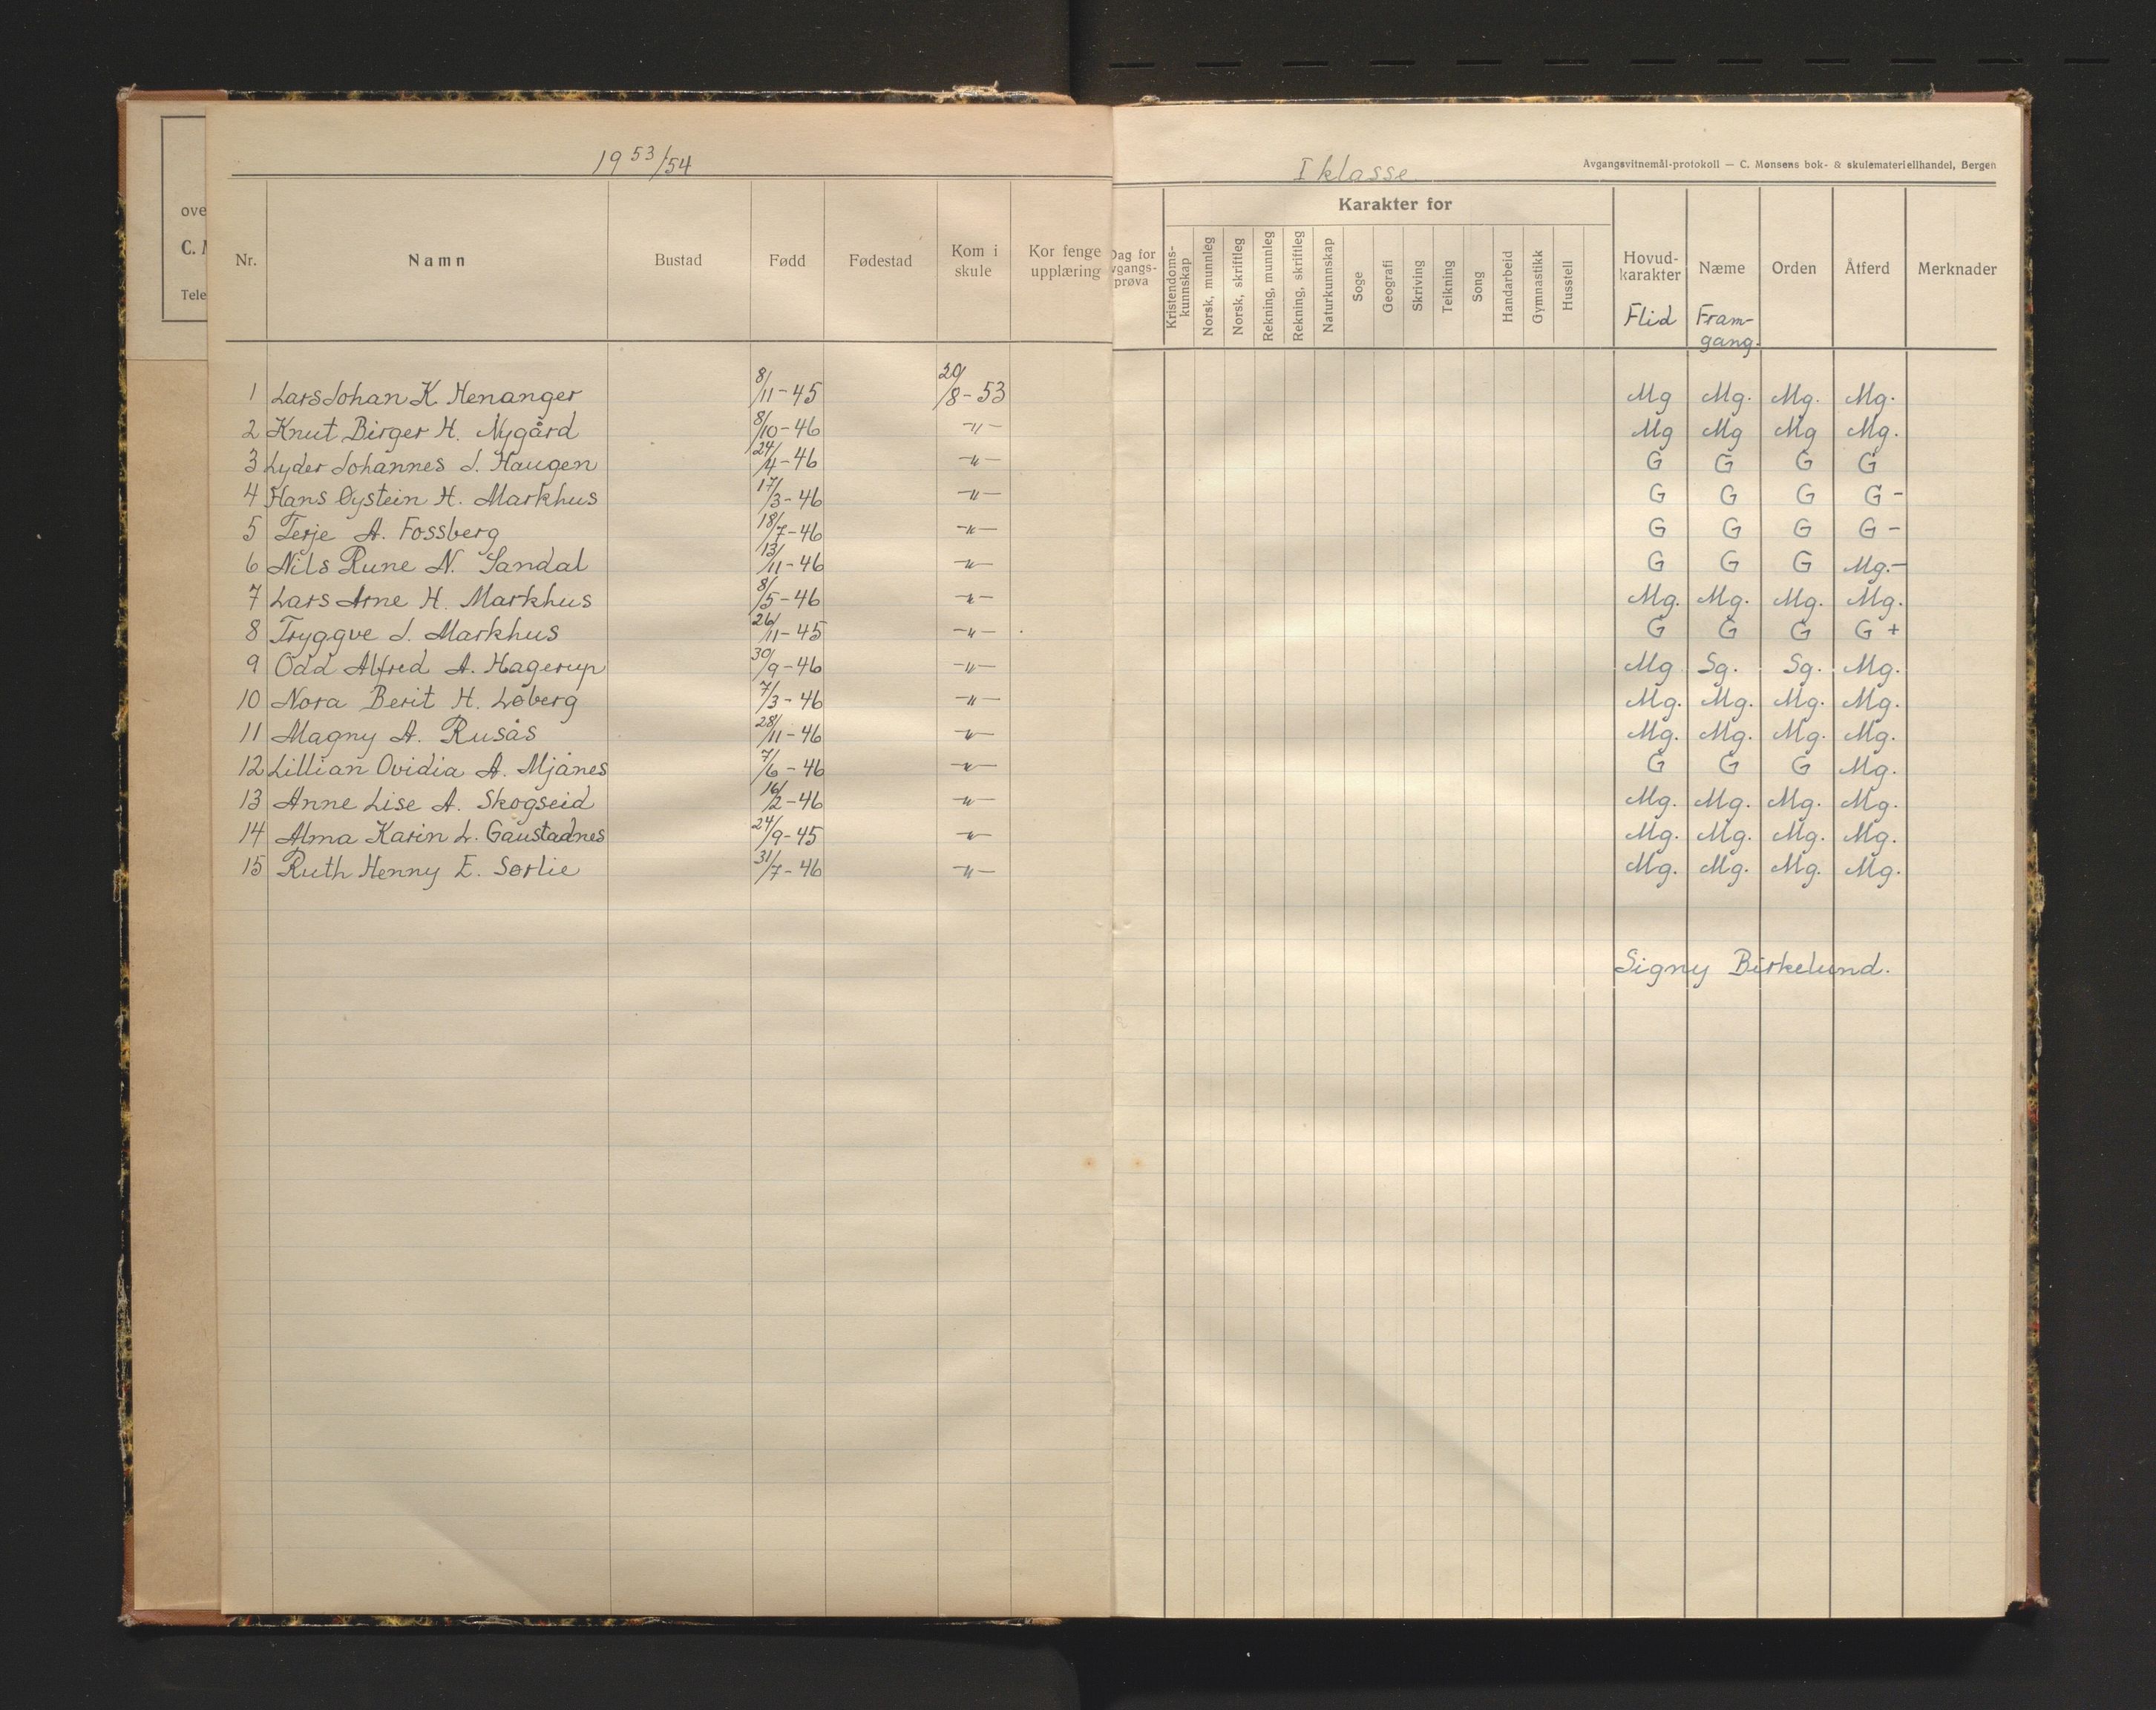 ove
C. M
Tele
1953/54
Nr.
Namn
Bustad
Fødd
Fødestad
Kom i skule
Kor fenge upplæring
1 Lars Johan K. Henanger 8/11-45 20/8-53
2 Knut Birger H. Nygård 8/10-46 -"-
3 Lyder Johannes J. Haugen 24/4-46 -"-
4 Hans Øystein H. Markhus 17/3-46 -"-
5 Terje A. Fossberg 18/7-46 -"-
6 Nils Rune N. Sandal 13/11-46 -"-
7 Lars Arne H. Markhus 8/5-46 -"-
8 Tryggve J. Markhus 26/11-45 -"-
9 Odd Alfred A. Hagerup 30/9-46 -"-
10 Nora Berit H. Løberg 7/3-46 -"-
11 Magny A. Rusås 28/11-46 -"-
12 Lillian Ovidia A. Mjånes 7/6-46 -"-
13 Anne Lise A. Skogseid 16/2-46 -"-
14 Alma Karin L. Gaustadnes 24/9-45 -"-
15 Ruth Henny E. Sørlie 31/7-46 -"-
I klasse
Avgangsvitnemål-protokoll — C. Monsens bok- & skulemateriellhandel, Bergen
Dag for
vgangs-
prøva
Karakter for
Kristendoms-
kunnskap
Norsk, munnleg
Norsk, skriftleg
Rekning, munnleg
Rekning, skriftleg
Naturkunnskap
Soge
Geografi
Skriving
Teikning
Song
Handarbeid
Gymnastikk
Husstell
Hovud-
karakter
Flid
Næme
Fram-
gang.
Orden
Åtferd
Merknader
Mg Mg. Mg. Mg.
Mg Mg Mg Mg.
G G G G
G G G G -
G G G G -
G G G Mg.-
Mg. Mg. Mg. Mg.
G G G G +
Mg. Sg. Sg. Mg.
Mg. Mg. Mg. Mg.
Mg. Mg. Mg. Mg.
G G G Mg.
Mg. Mg. Mg. Mg.
Mg. Mg. Mg. Mg.
Mg. Mg. Mg. Mg.
Signy Birkelund.